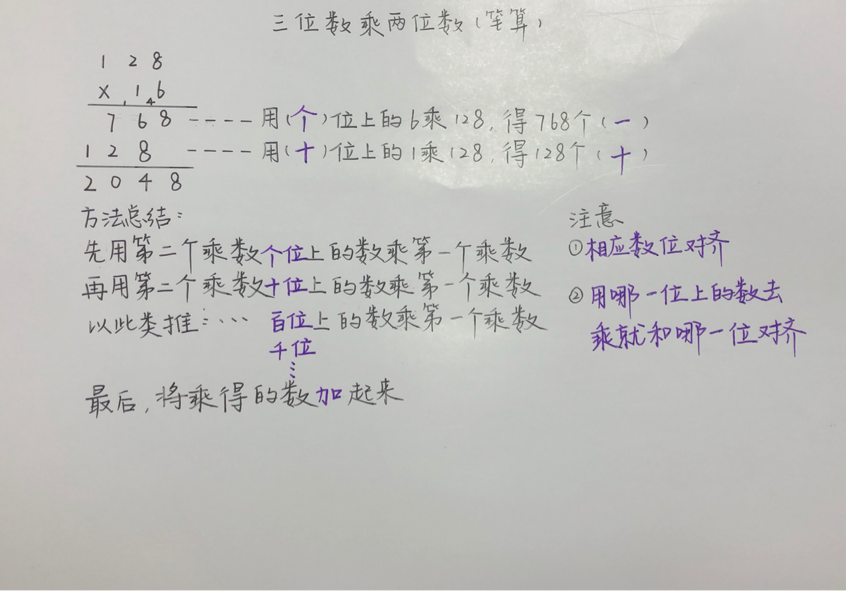 三位数乘两位数（笔算）
1 2 8
× 1 4 6
7 6 8 ---- 用（个）位上的6乘128，得768个（一）
1 2 8 ---- 用（十）位上的1乘128，得128个（十）
2 0 4 8
方法总结：
先用第二个乘数个位上的数乘第一个乘数
再用第二个乘数十位上的数乘第一个乘数
以此类推：… 百位上的数乘第一个乘数
千位
⋮
最后，将乘得的数加起来
注意
①相应数位对齐
②用哪一位上的数去
乘就和哪一位对齐